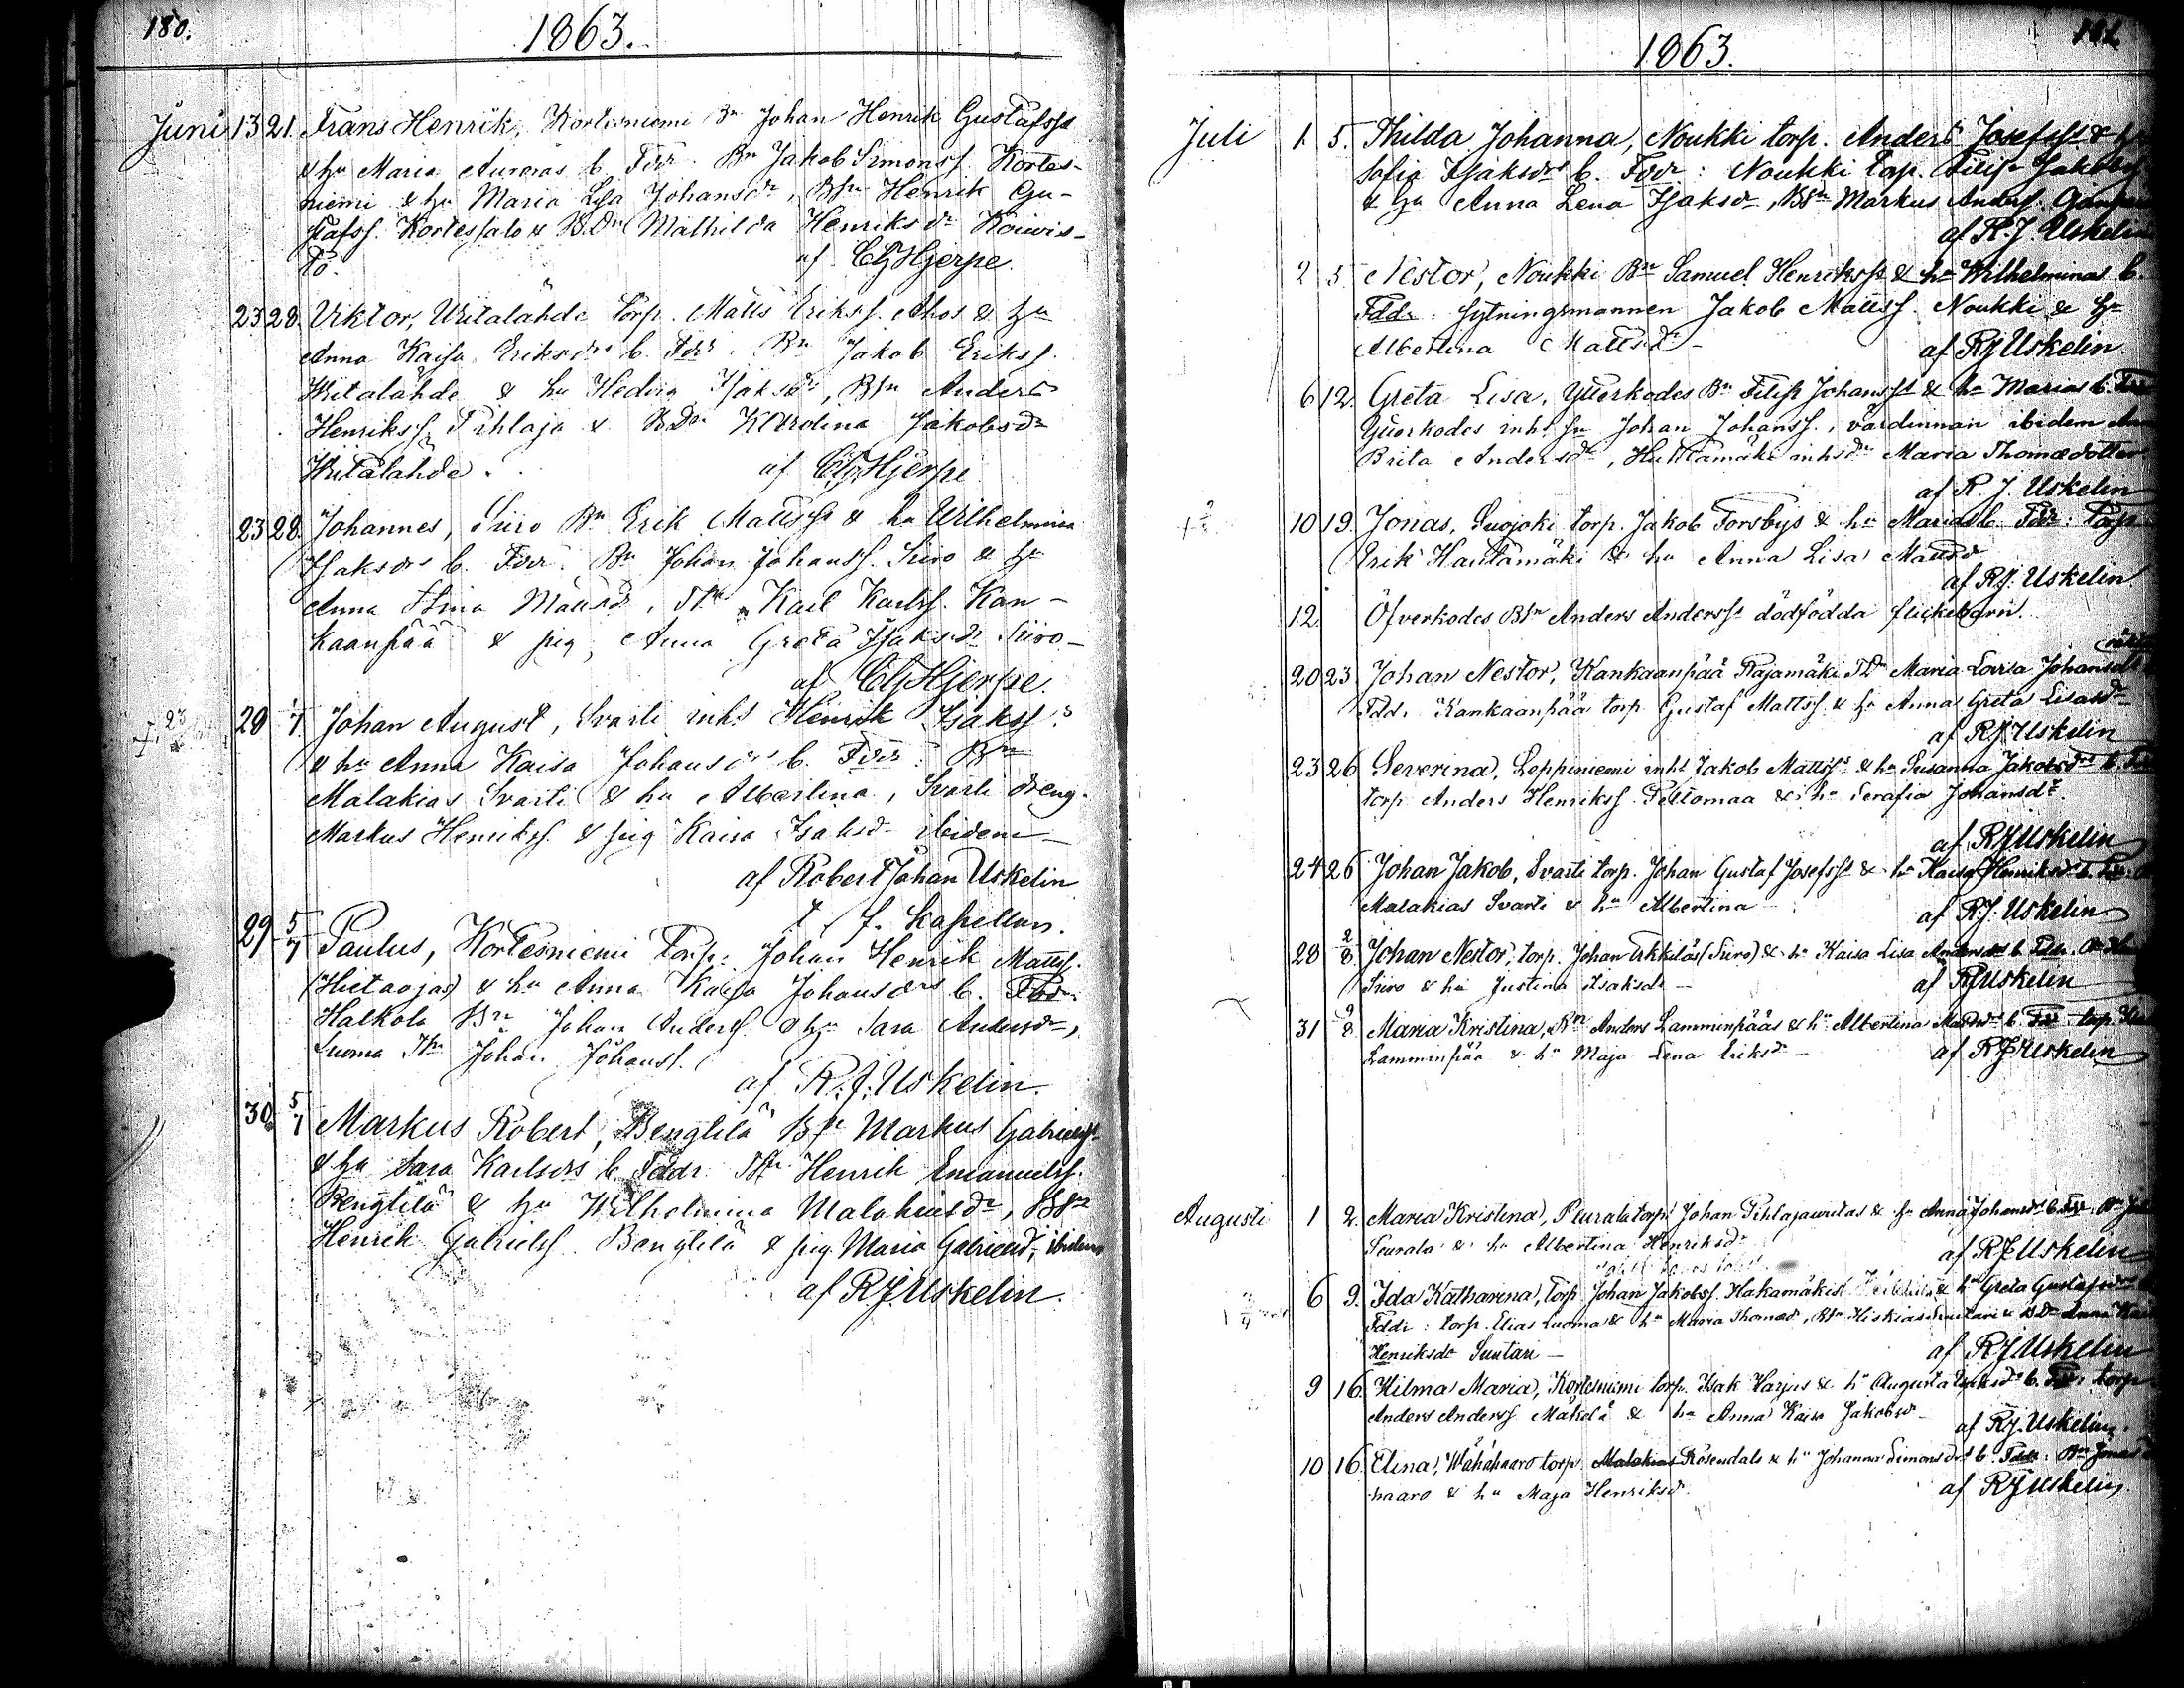 180.
1863.
Juni 13 21. Frans Henrik, Kortesniemi Bn Johan Henrik Gustafss:s
& hu Maria Auroras b. Fddr. Bn Jakob Simonss. Kortes-
niemi & hu Maria Lisa Johansdr, BSn Henrik Gu-
stafss. Kortessalo & B.Dr Mathilda Henriksdr Koivis-
to. af CGHjerpe.
23 28. Viktor, Witalähde torp. Matts Erikss. Ahos & hu
Anna Kaisa Eriksdrs b. Fddr. Bn Jakob Erikss.
Witalähde & hu Hedvig Isaksdr, BSn Anders
Henrikss. Pihlaja & B.Dr Karolina Jakobsdr
Witalähde. af CGHjerpe
23 28. Johannes, Siiro Bn Erik Mattss:s & hu Wilhelmina
Isaksdrs b. Fddr. Bn Johan Johanss. Siiro & hu
Anna Stina Mattsdr, Karl Karlss. Kan-
kaanpää & pig. Anna Greta Isaksdr Siiro-
af CGHjerpe.
28 Johan August, Svarti inhs Henrik Isakss:s
& hu Anna Kaisa Johansdrs b. Fddr: Bn
Malakias Svarti & hu Albertina, Svarti dreng.
Markus Henrikss. & pig Kaisa Isaksdr ibidem-
af Robert Johan Uskelin
t. f. kapellan.
29 5/7 Paulus, Kortesniemi Torp. Johan Henrik Mattss.
(Hietaojas) & hu Anna Kaisa Johansdrs b. Fddr:
Halkola Bn Johan Anderss. & hu Sara Andersdr,
Luoma Johan Johanss.
af R.J.Uskelin.
30 5/7 Markus Robert, Bengtilä BSn Markus Gabrielss:s
& hu Sara Karlsdrs b. Fddr. Henrik Emanuelss.
Bengtilä & hu Wilhelmina Malakiasdr, BSn
Henrik Gabrielss. Bengtilä & pig. Maria Gabrielsdr, ibidem
af RJUskelin.
1863.
Juli 1. 5. Thilda Johanna, Noukki torp. Anders Josefss:s & hu
Sofia Isaksdrs b. Fddr: Noukki torp. Filip Jakobss
& hu Anna Lena Isaksdr, BSn Markus Anderss.
af R.J. Uskelin
2 5 Nestor, Noukki Bn Samuel Henrikss:s & hu Wilhelminas b.
Fddr: sytningsmannen Jakob Mattss. Noukki & hu
Albertina Mattsdr - af RJUskelin.
6 12. Greta Lisa, Ytterkodes Bn Filip Johanss:s & hu Marias b.
Ytterkodes inhs Sn Johan Johanss., värdinnan ibidem
Brita Andersdr, Huhtamäki inhsdr Maria Thomædotter
af R.J. Uskelin
10 19. Jonas, Suojoki torp. Jakob Forsbys & hu Marias b. Fddr: torp.
Erik Hautamäki & hu Anna Lisa Mattsdr
af RJ.Uskelin
12. Öfverkodes BSn Anders Anderss:s dödfödda flickebarn.
20 23 Johan Nestor, Kankaanpää Rajamäki Maria Lovisa Johansdrs
Fddr. Kankaanpää torp Gustaf Mattss. & hu Anna Greta Isaksdr
af RJUskelin
23 26 Severina, Leppiniemi inhs Jakob Mattss:s & hu Susanna Jakobsdrs b.
torp Anders Henrikss. Peltomaa & hu Serafia Johansdr.
af RJUskelin
24 26 Johan Jakob, Svarti torp. Johan Gustaf Josefss:s & hu Kaisa Henriksdrs b.
Malakias Svarti & hu Albertina af RJ.Uskelin
28 2/8 Johan Nestor, torp. Johan Ukkiläs (Siiro) & hu Kaisa Lisa Andersdrs b. Fddr.
Siiro & hu Justina Isaksdr - af RJUskelin
31 9/8 Maria Kristina, Bn Anders Lamminpääs & hu Albertina b. Fddr. torp.
Lamminpää & hu Maja Lena Eriksdr - af RJUskelin
Augusti 1 2. Maria Kristina, Peurala torp. Johan & hu Anna Johansdrs b.
Peurala & hu Albertina Henriksdr af RJUskelin
6 9. Ida Katharina, torp Johan Jakobss. Hakamäkis & hu Greta Gustafsdrs
Fddr: torp. Elias Luoma & hu Maria Thomædr, BSn Hiskias Suutari & BDr Anna
Henriksdr Suutari - af RJUskelin
9 16. Hilma Maria, Kortesniemi torp. Isak Harjus & hu Augusta b. Fddr torp
Anders Anderss Mäkelä & hu Anna Kaisa Jakobsdr. af RJ.Uskelin.
10 16. Elina, Wähähaaro torp. Malakias Rosendals & hu Johanna Simonsdrs b. Fddr: Bn Jonas
haaro & hu Maja Henriksdr. af RJUskelin